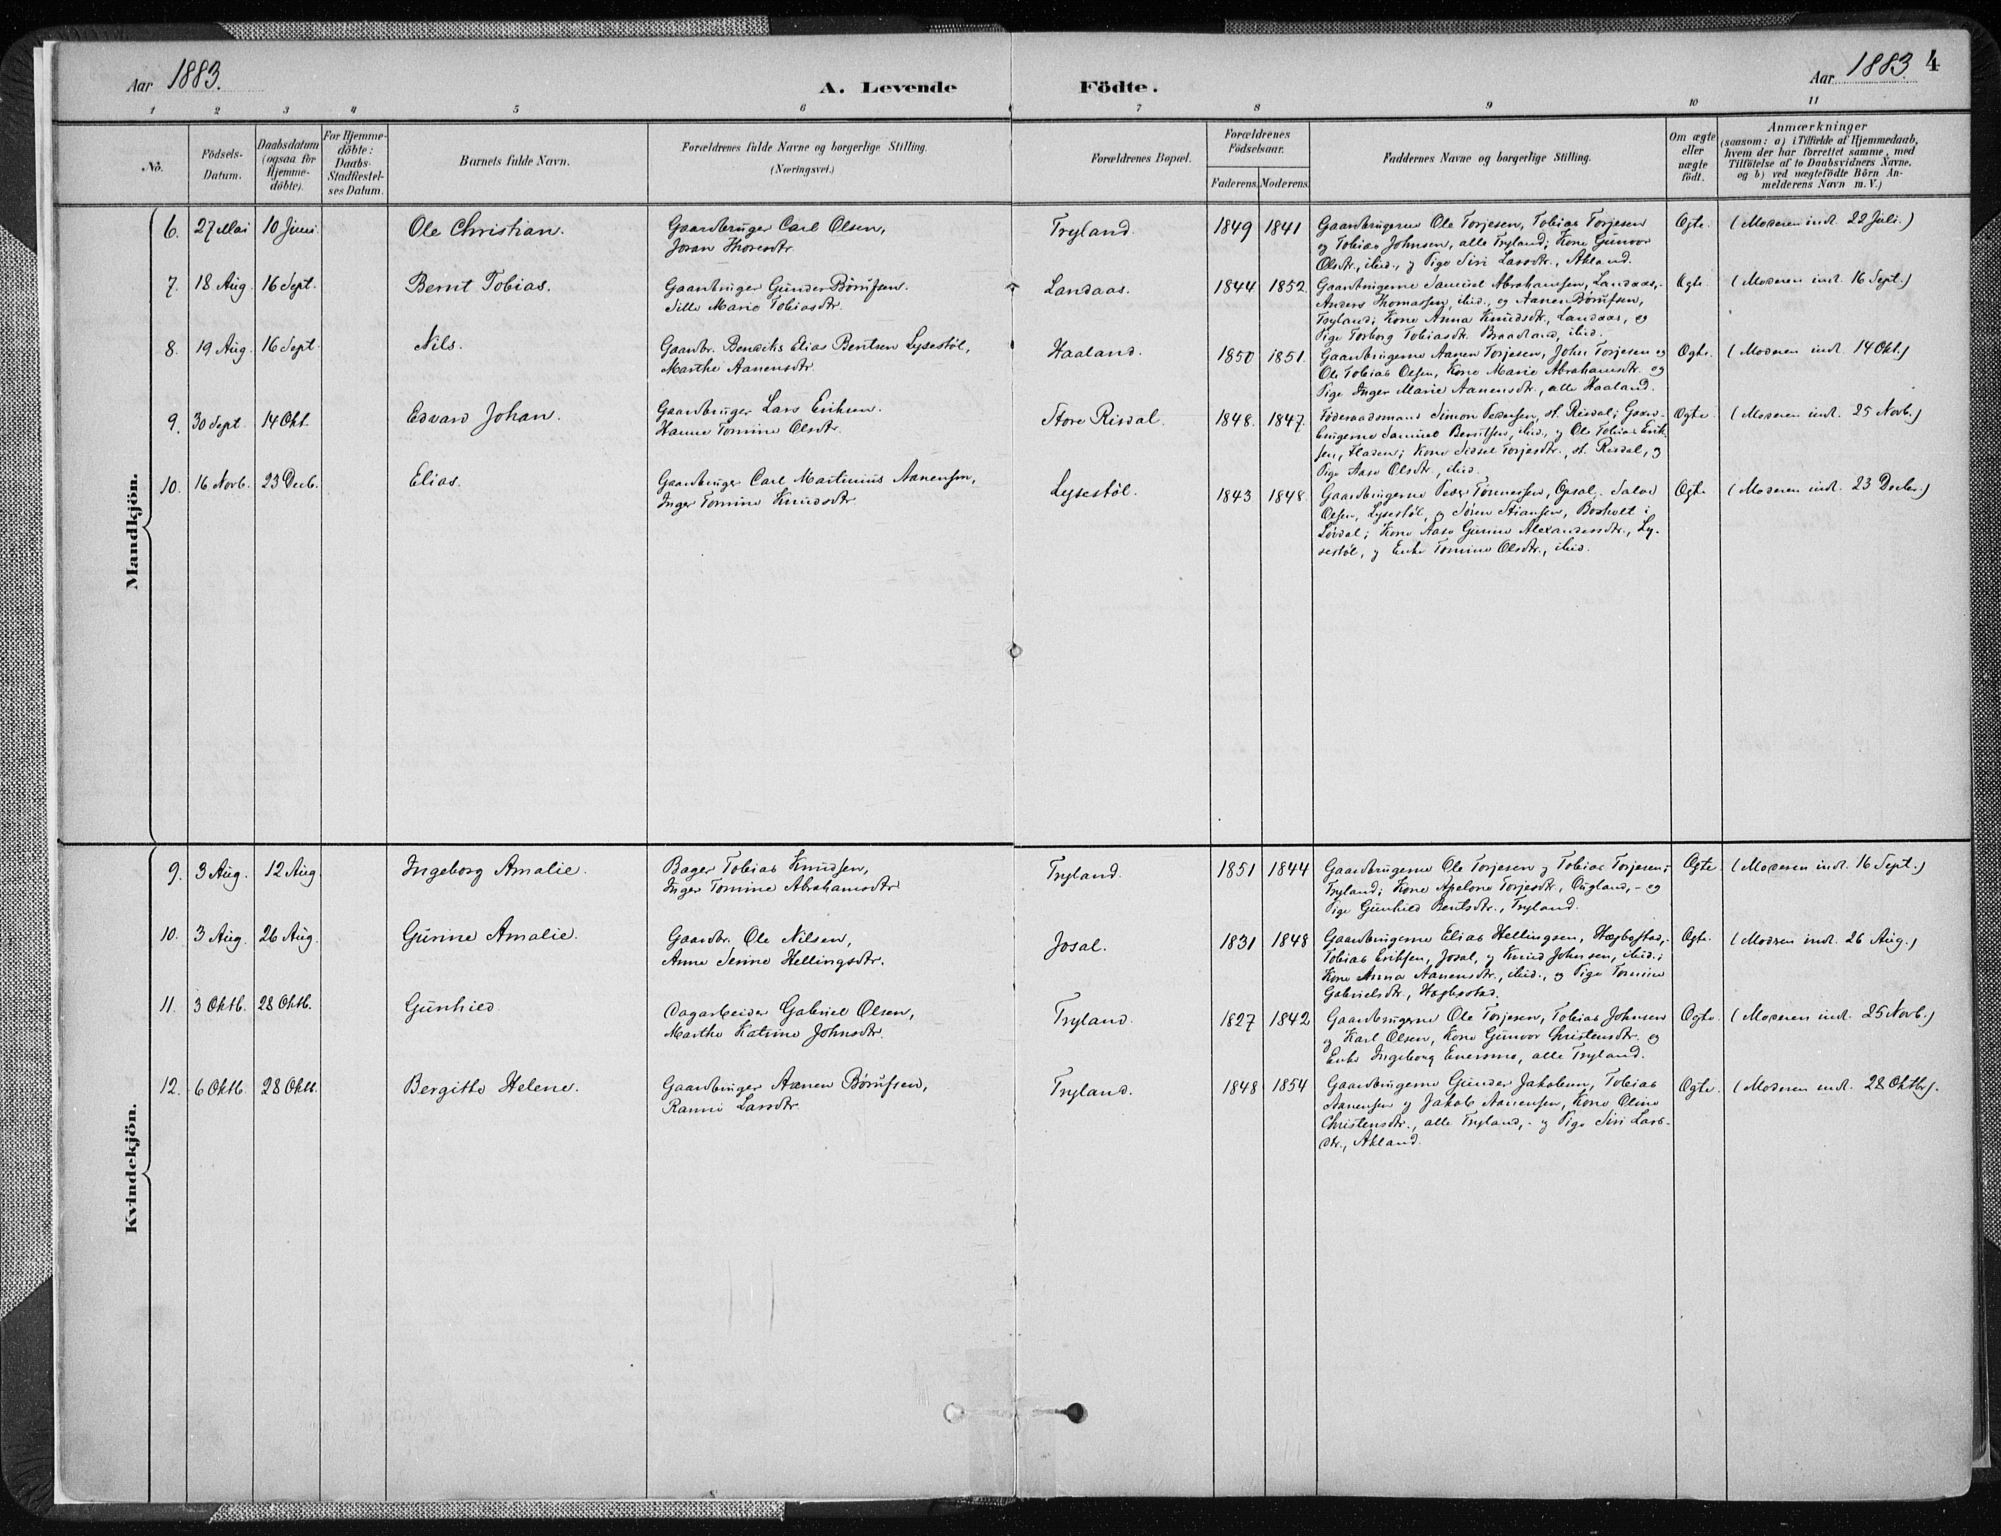 Aar 1883.
A. Levende Födte.
Aar 1883 4
1 2 3 4 5 6 7 8 9 10 11
No.
Födsels-
Datum.
Daabsdatum
(ogsaa for
Hjemme-
döbte).
For Hjemme-
döbte:
Daabs-
Stadfæstel-
ses Datum.
Barnets fulde Navn.
Forældrenes fulde Navne og borgerlige Stilling.
(Næringsvei.)
Forældrenes Bopæl.
Forældrenes
Födselsaar.
Faderens. Moderens.
Faddernes Navne og borgerlige Stilling.
Om ægte
eller
uægte
födt.
Anmærkninger
(saasom: a) i Tilfælde af Hjemmedaab,
hvem der har forrettet samme, med
Tilföielse af to Daabsvidners Navne.
og b) ved uægtefödte Börn An-
melderens Navn m. V.)
Mandkjön.
6. 27 Mai 10 Juni Ole Christian. Gaardbruger Carl Olsen,
Joran Thoresdtr.
Tryland. 1849 1841 Gaardbrugerne Ole Torjesen, Tobias Torjesen
og Tobias Johnsen, alle Tryland; Kone Gunvor
Olsdtr., ibid., og Pige Siri Larsdtr., Akland.
Ogte. (Moderen indl. 22 Juli.)
7. 18 Aug. 16 Sept. Bernt Tobias. Gaardbruger Gunder Börufsen.
Sille Marie Tobiasdtr.
Landaas. 1844 1852 Gaardbrugerne Samuel Abrahamsen, Landaas,
Anders Thomassen, ibid., og Aanen Börufsen,
Tryland; Kone Anna Knudsdtr., Landaas, og
Pige Torborg Tobiasdtr. Braadland, ibid.
Ogte. (Moderen indl. 16 Sept.)
8. 19 Aug. 16 Sept. Nils. Gaardbr. Bendiks Elias Bentsen Lysestöl,
Marthe Aanensdtr.
Haaland. 1850 1851. Gaardbrugerne Aanen Torjesen, John Torjesen og
Ole Tobias Olsen, Kone Marie Abrahamsdtr. og
Pige Inger Marie Aanensdtr., alle Haaland.
Ogte. (Moderen indl. 14 Okt.)
9. 30 Sept 14 Okt. Edvard Johan. Gaardbruger Lars Eriksen.
Hanne Tomine Olsdtr.
Store Risdal. 1848. 1847. Föderaadsmand Simon Pedersen, st. Risdal; Gaard-
brugerne Samuel Berntsen, ibid., og Ole Tobias Erik-
sen, Fladen; Kone Sidsel Torjesdtr., st. Risdal, og
Pige Aase Olsdtr., ibid.
Ogte (Moderen indl. 25 Novb.)
10. 16 Novb. 23 Decb. Elias. Gaardbruger Carl Martinius Aanensen,
Inger Tomine Knudsdtr.
Lysestöl. 1843 1848. Gaardbrugerne Peder Tönnesen, Opsal, Salve
Olsen, Lysestöl, og Sören Stiansen, Bosholt i
Lövdal; Kone Aase Gurine Alexandersdtr., Ly-
sestöl, og Enke Tomine Olsdtr., ibid.
Ogte (Moderen indl. 23 Decbr.)
Kvindekjön.
9. 3 Aug. 12 Aug. Ingeborg Amalie. Bager Tobias Knudsen,
Inger Tomine Abrahamsdtr
Tryland. 1851 1844 Gaardbrugerne Ole Torjesen og Tobias Torjesen,
Tryland; Kone Apelone Torjesdtr., Ougland, - og
Pige Gunhild Bentsdtr., Tryland.
Ogte (Moderen indl. 16 Sept.)
10. 3 Aug. 26 Aug. Gurine Amalie. Gaardbr. Ole Nilsen,
Anne Serine Hellingsdtr.
Josal. 1831 1848 Gaardbrugerne Elias Hellingsen, Hægbostad,
Tobias Eriksen, Josal, og Knud Johnsen, ibid.;
Kone Anna Aanensdtr., ibid., og Pige Tomine
Gabrielsdtr., Hægbostad.
Ogte. (Modren indl. 26 Aug.)
11. 3 Oktb. 28 Oktb. Gunhild Dagarbeider Gabriel Olsen,
Marthe Katrine Johnsdtr.
Tryland. 1827 1842 Gaardbrugerne Ole Torjesen, Tobias Johnsen
og Karl Olsen, Kone Gunvor Christensdtr. og
Enke Ingeborg Enersmo, alle Tryland.
Ogte. (Moderen indl. 25 Novb.)
12. 6 Oktb. 28 Oktb. Bergitte Helene. Gaardbruger Aanen Börufsen,
Ranni Larsdtr
Tryland. 1848 1854 Gaardbrugerne Gunder Jakobsen, Tobias
Aanensen og Jakob Aanensen, Kone Oline
Christensdtr., alle Tryland, - og Pige Siri Lars-
dtr., Akland.
Ogte. (Moderen indl. 28 Oktbr).